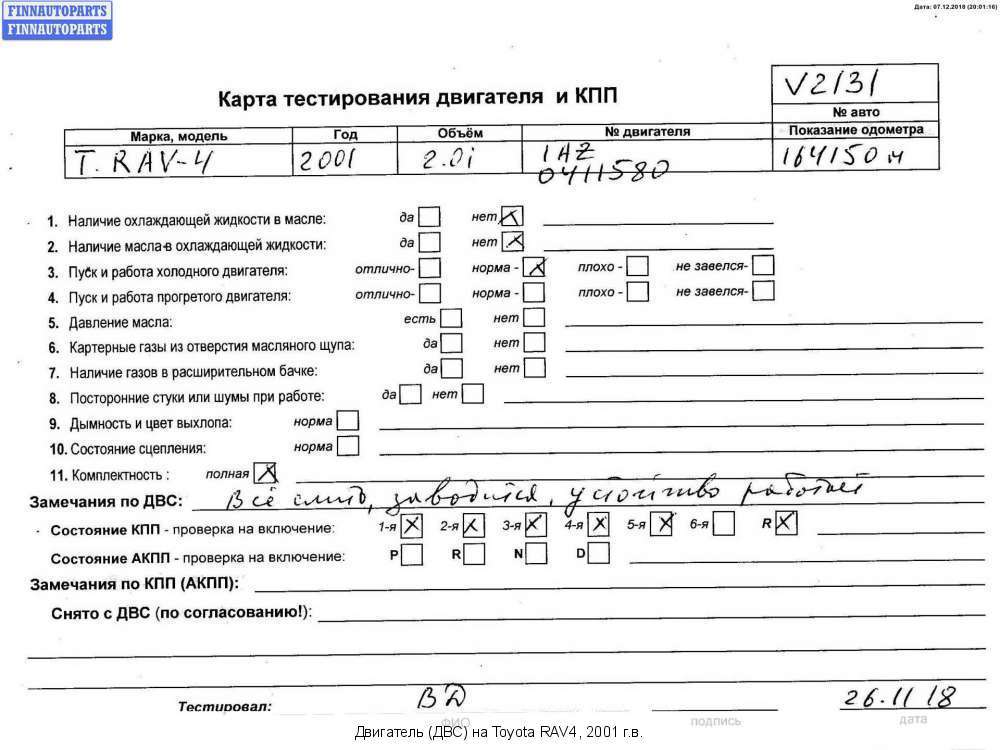 FINNAUTOPARTS
FINNAUTOPARTS
Дата: 07.12.2018 (20:01:16)
Карта тестирования двигателя и КПП
V2131
№ авто
Марка, модель Год Объём № двигателя Показание одометра
T. RAV-4 2001 2.0i 1AZ 0411580 164150 м
1. Наличие охлаждающей жидкости в масле: да нет
2. Наличие масла в охлаждающей жидкости: да нет
3. Пуск и работа холодного двигателя: отлично- норма - плохо - не завелся-
4. Пуск и работа прогретого двигателя: отлично- норма - плохо - не завелся-
5. Давление масла: есть нет
6. Картерные газы из отверстия масляного щупа: да нет
7. Наличие газов в расширительном бачке: да нет
8. Посторонние стуки или шумы при работе: да нет
9. Дымность и цвет выхлопа: норма
10. Состояние сцепления: норма
11. Комплектность : полная
Замечания по ДВС: Всё слито, заводится, устойчиво работает
Состояние КПП - проверка на включение: 1-я 2-я 3-я 4-я 5-я 6-я R
Состояние АКПП - проверка на включение: P R N D
Замечания по КПП (АКПП):
Снято с ДВС (по согласованию!):
Тестировал: ВД 26.11 18
ФИО подпись дата
Двигатель (ДВС) на Toyota RAV4, 2001 г.в.